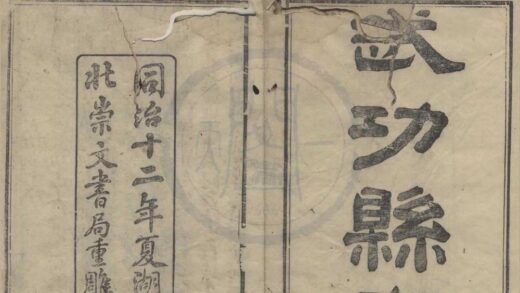 武功縣
同治十二年夏湖
北崇文書局重雕